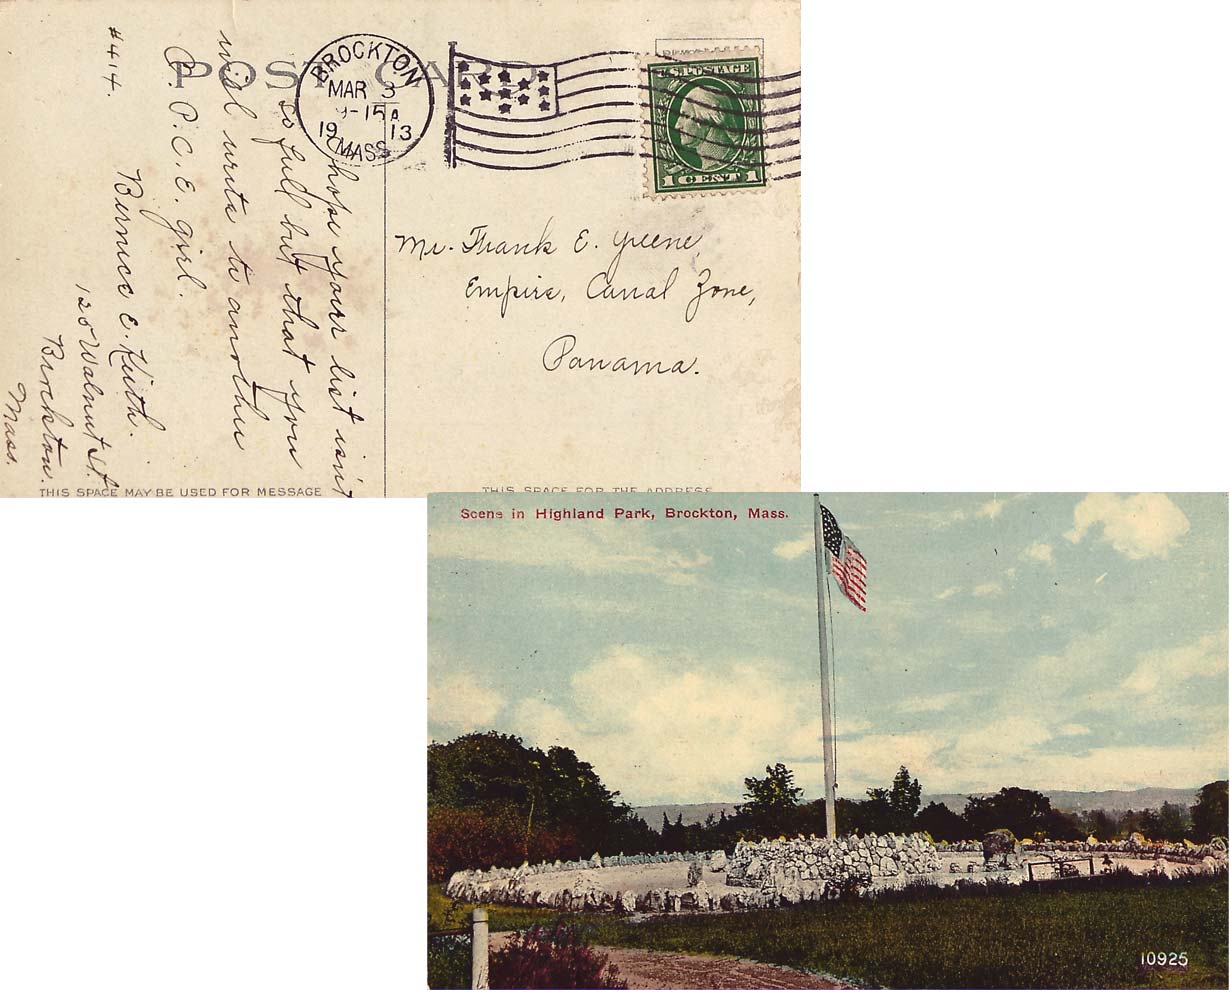 POST CARD
BROCKTON
MAR 3
9-15 A
19 13
MASS
U.S. POSTAGE
1 CENT 1
hope your list isn't
so full but that you
will write to another
P. P. C. E. girl.
Bernice E. Keith.
120 Walnut St.
Brockton.
Mass.
#414.
Mr. Frank E. Greene,
Empire, Canal Zone,
Panama.
THIS SPACE MAY BE USED FOR MESSAGE
THIS SPACE FOR THE ADDRESS
Scene in Highland Park, Brockton, Mass.
10925